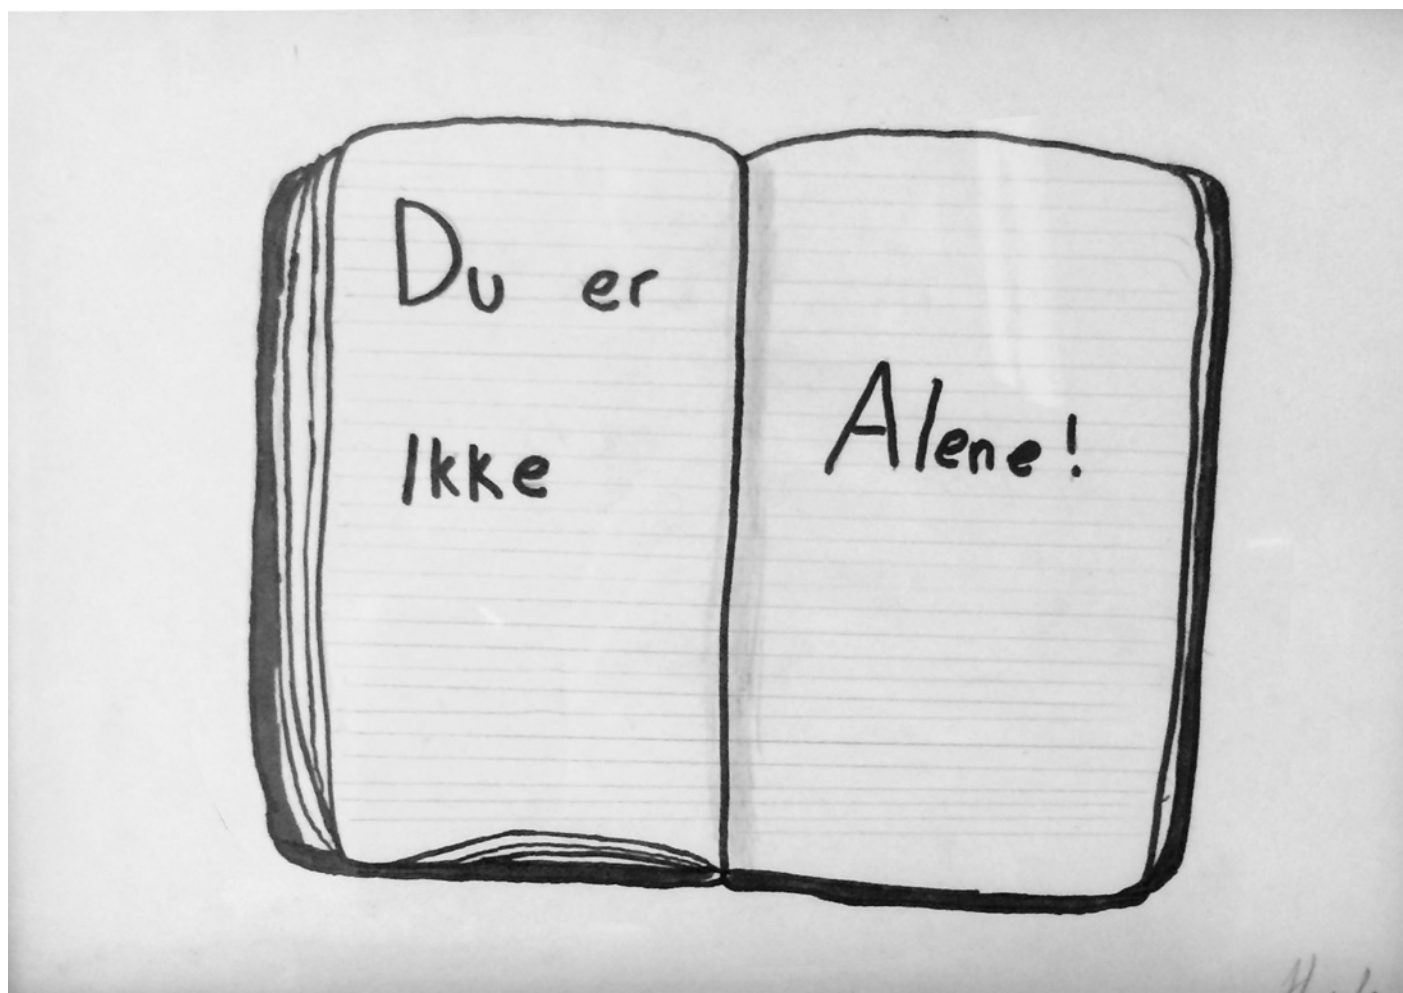 Du er
Ikke
Alene!